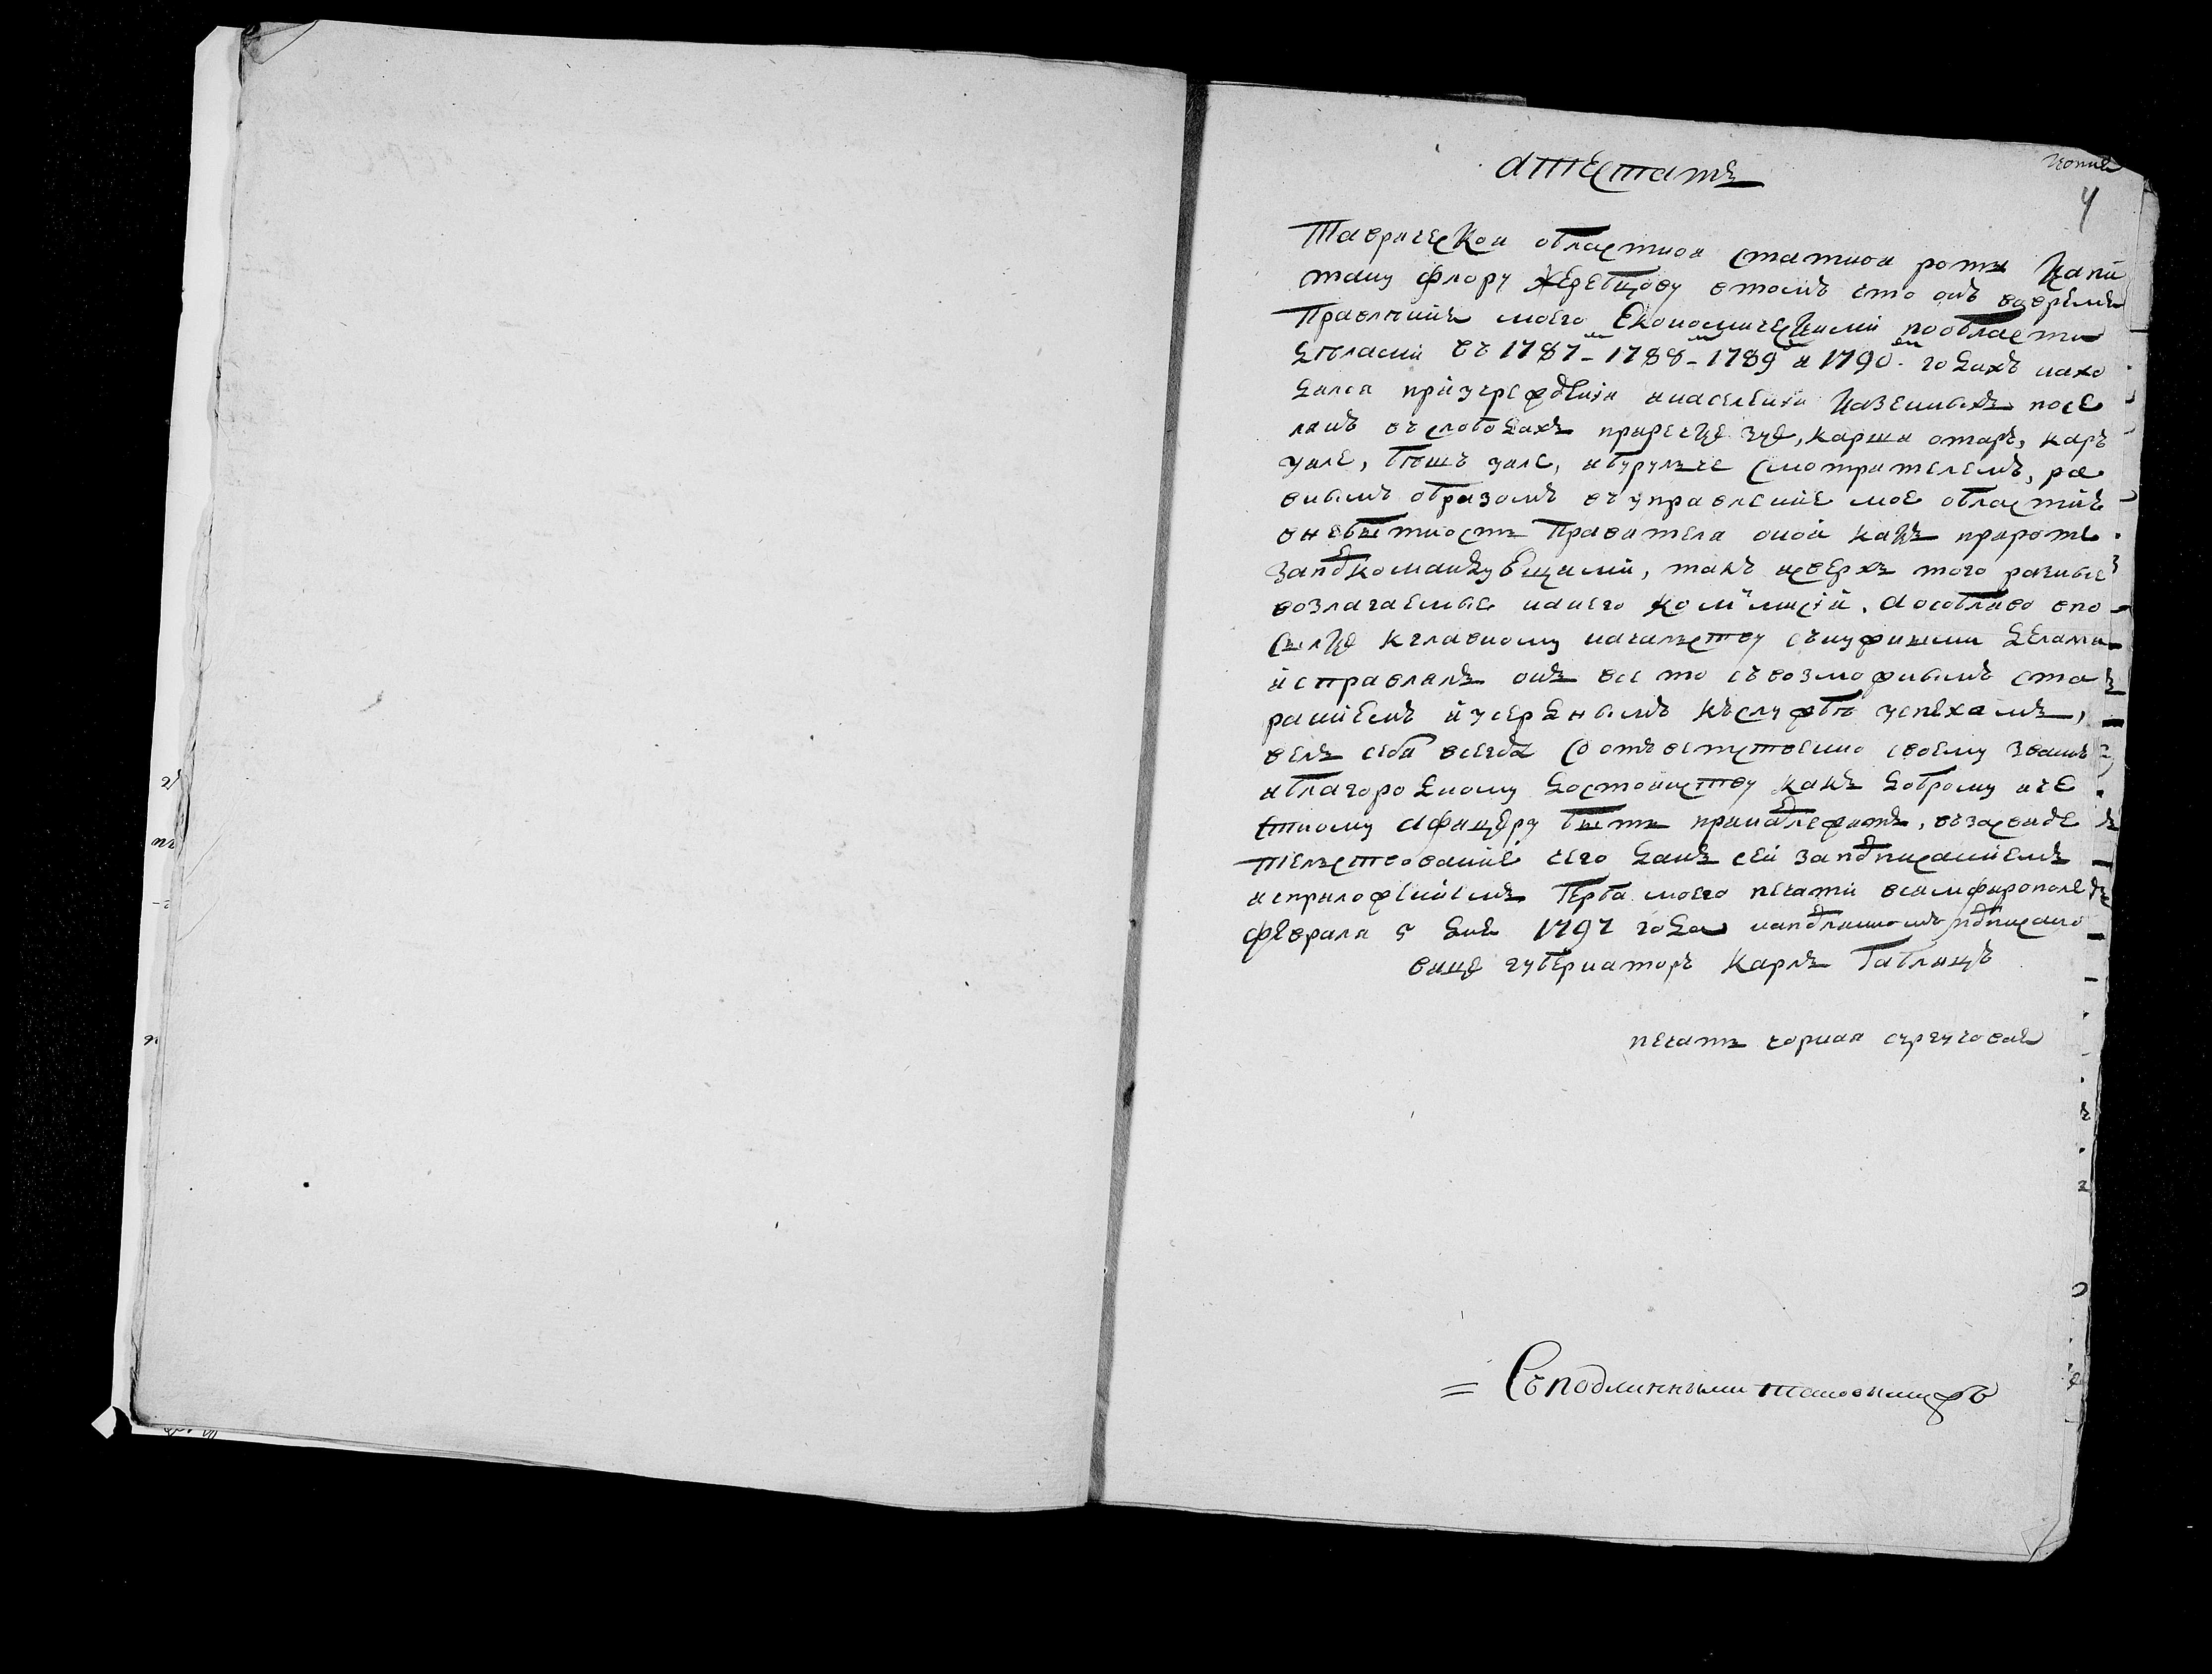 копия
4
атестатъ
Таврической областной статной роты Капи
тану флору Жеребцову втомъ что онъ вовремя
Правления моего Економическими пообласти
делами въ 1787_ 1788_ 1789 и 1790. годахъ нахо
дился приучреждении инаселении Казенныхъ посе
лянъ въ слободахъ
уале, бешъ уале, смотрителемъ, ра
внымъ образомъ въ управление мое областию
внебытность Правителя оной какъ прироте
запдкомандующими, такъ исверхъ того разные
возлагаемые нанего комъмисии. а особливо впо
сылке кглавному начальству снужными делами
исправлялъ онъ все то съвозможнымъ ста
раниемъ иусерднымъ кслужбе успехамъ,
велъ себя всегда соответственно своему званию
иблагородному достоинству какъ доброму иче
стному афицеру быть принадлежитъ, въ засвиде
тельствование чего данъ сей запдписаниемъ
исприложениемъ Герба моего печати всимфирополе
февраля 5 дня 1797 года напдлинномъ пдписано
вице губернаторъ Карлъ Габлицъ
печать чорная сургучовая
= Съ подлиннымъ